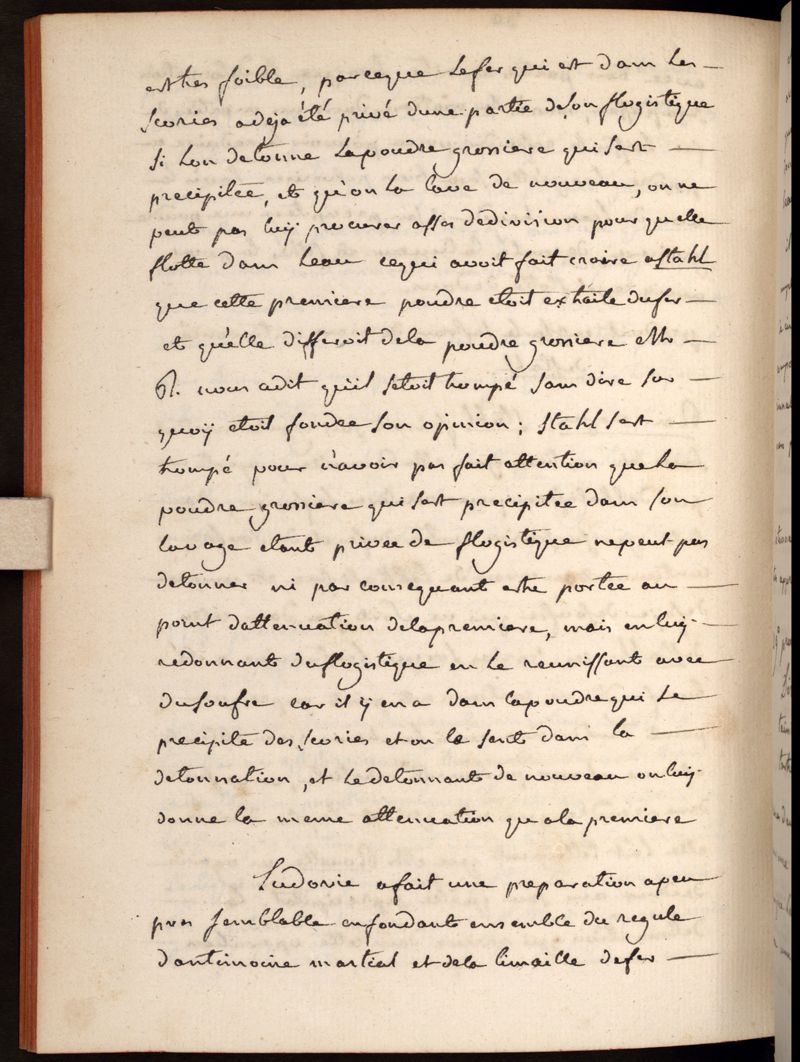 est tres foible, parceque le fer qui est dans les —
scories a deja été privé d'une partie de son flogistique
si l'on detonne la poudre grossiere qui s'est —
precipitée, et qu'on la lave de nouveau, on ne
peut pas luy procurer assés de division pour quelle
flotte dans l'eau ce qui avoit fait croire a Stahl
que cette premiere poudre etoit extraite du fer —
et qu'elle differoit de la poudre grossiere et Mr —
R. nous a dit qu'il s'etoit trompé sans dire sur —
quoy etoit fondée son opinion ; Stahl s'est —
trompé pour n'avoir pas fait attention que la
poudre grossiere qui s'est precipitée dans son
lavage etant privée de flogistique ne peut pas
detonner ni par consequant estre portée au —
point d'attenuation de la premiere, mais en luy —
redonnant du flogistique en le reunissant avec
du soufre car il y en a dans la poudre qui se
precipite des scories et on le sent dans la —
detonnation, et le detonnant de nouveau on luy
donne la meme attenuation qu'a la premiere
Ludovic a fait une preparation a peu
pres semblable en fondant ensemble du regule
d'antimoine martial et de la limaille de fer —